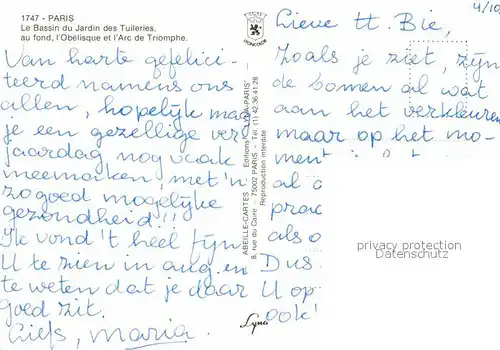 1747 - PARIS
Le Bassin du Jardin des Tuileries,
au fond, l'Obélisque et l'Arc de Triomphe.
Van harte gefelici-
teerd namens ons
allen, hopelijk mag
je een gezellige ver-
jaardag, nog vaak
meemaken, met 'n
zo goed mogelijke
gezondheid!!!
Ik vond 't heel fijn
U te zien in aug. en
te weten dat je daar
goed zit.
Liefs, Maria.
YVON
ABEILLE-CARTES
Editions "LYNA-PARIS"
8, rue du Caire - 75002 PARIS - Tél. (1) 42.36.41.28
Reproduction interdite
Lyna
4/10
Lieve tt. Bie,
Zoals je ziet, zijn
de bomen al wat
aan het verkleuren
maar op het mo-
ment
al
als
Dus
U op
ook!
privacy protection
Datenschutz